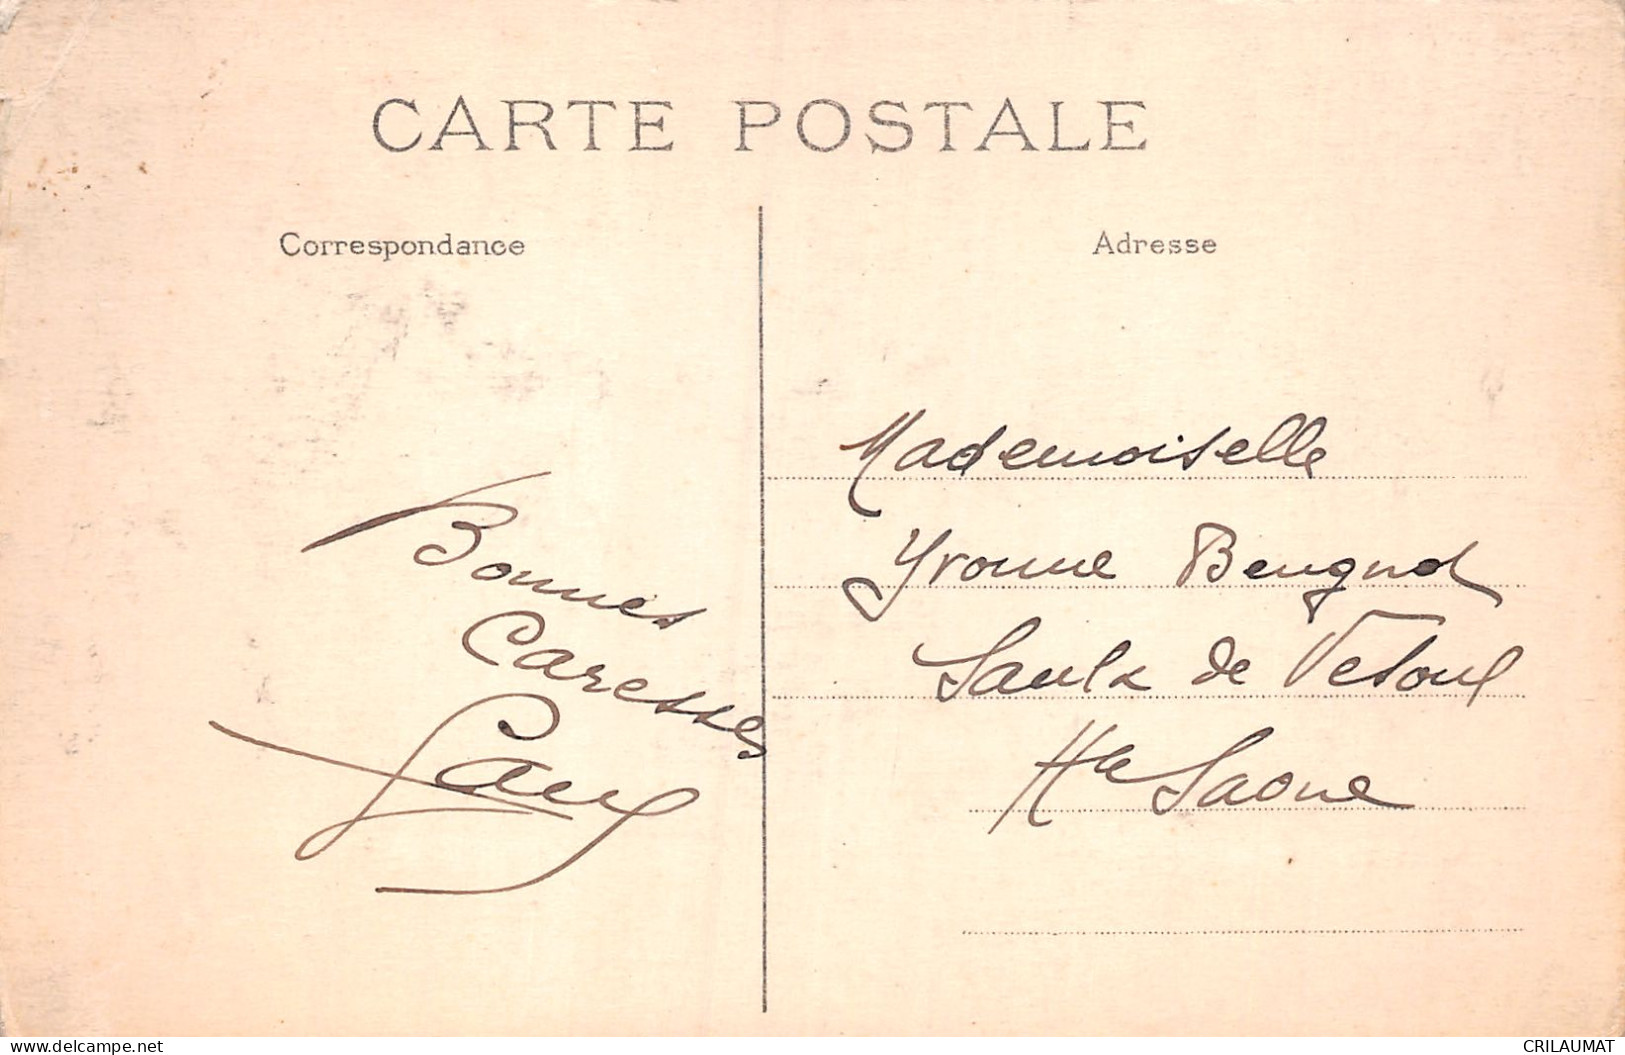 CARTE POSTALE
Correspondance
Adresse
Bonnes
Caresses
Mademoiselle
Yvonne Beugnot
Saulx de Vesoul
Hte Saone
www.delcampe.net
CRILAUMAT